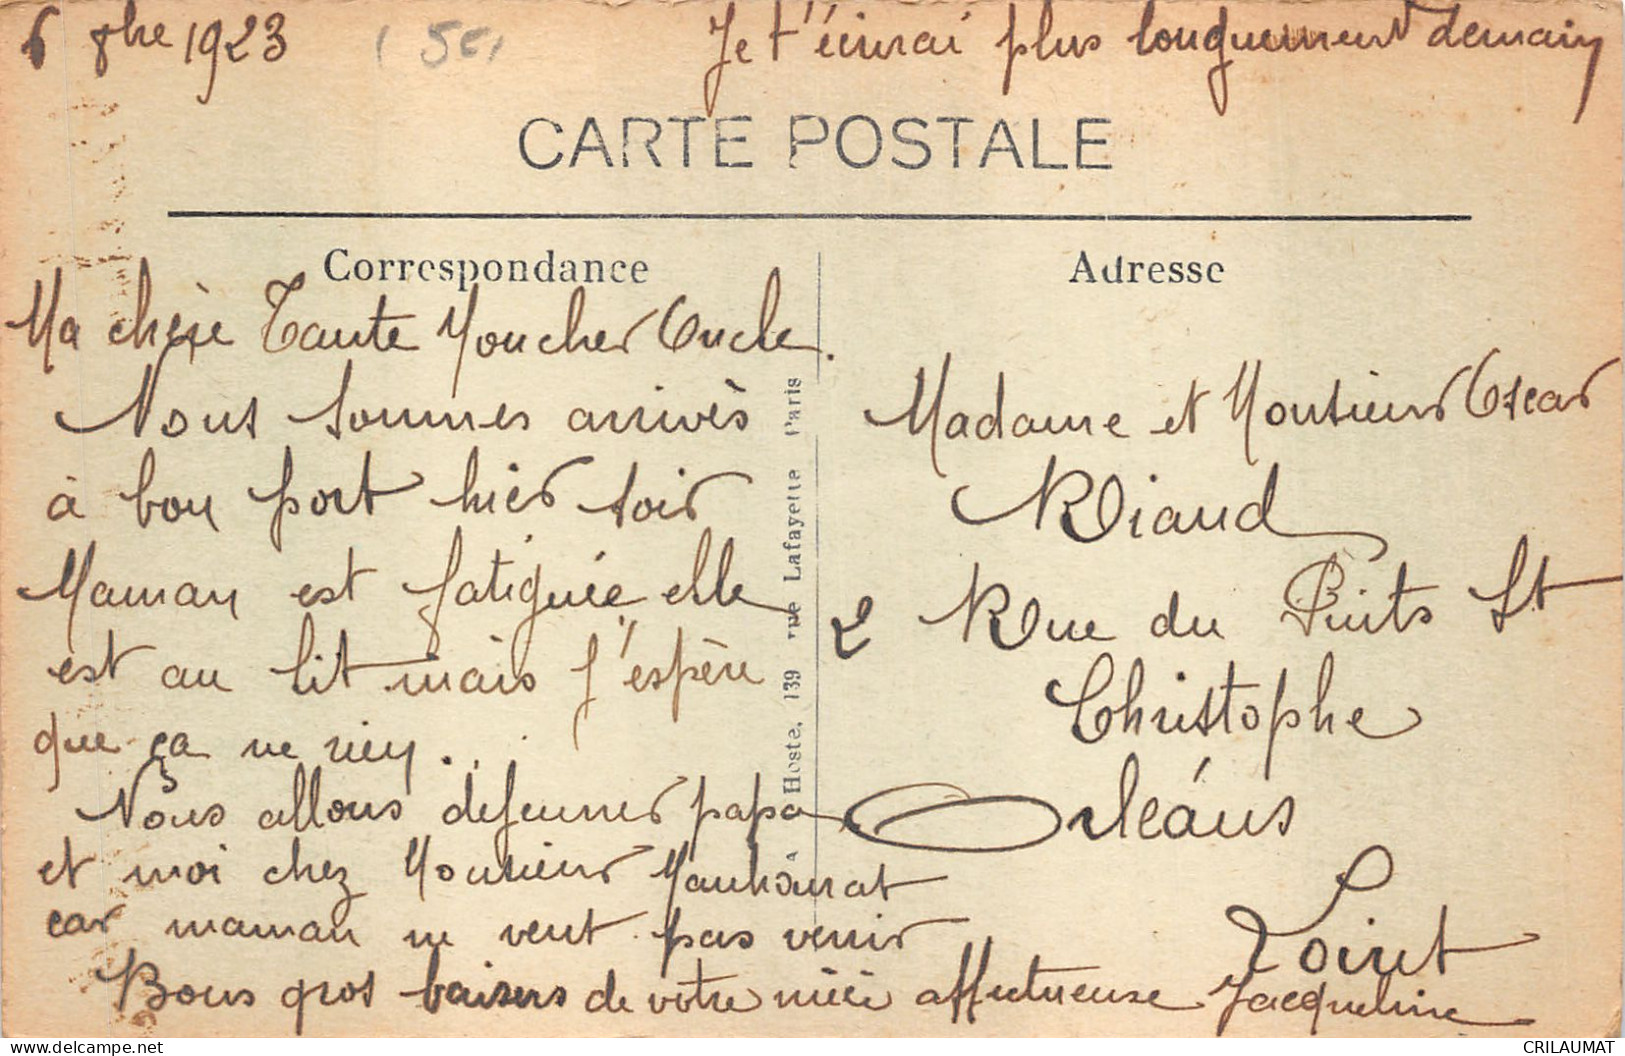 6 8bre 1923
Je t'écirrai plus longuement demain
15e
CARTE POSTALE
Correspondance
Ma chère Tante Mon cher Oncle.
Nous sommes arrivès
à bon port hier soir
Maman est fatiguée elle
est au lit mais j'espère
que ça ne rien...
Nous allons dejeuner papa
et moi chez Monsieur
car maman ne veut pas venir
Bons gros baisers de votre nièce affectueuse Jacqueline
A Hoste. 139 rue Lafayette Paris
Adresse
Madame et Monsieur Oscar
Riaud
2 Rue du Puits St
Christophe
Orléans
Loiret
CRILAUMAT